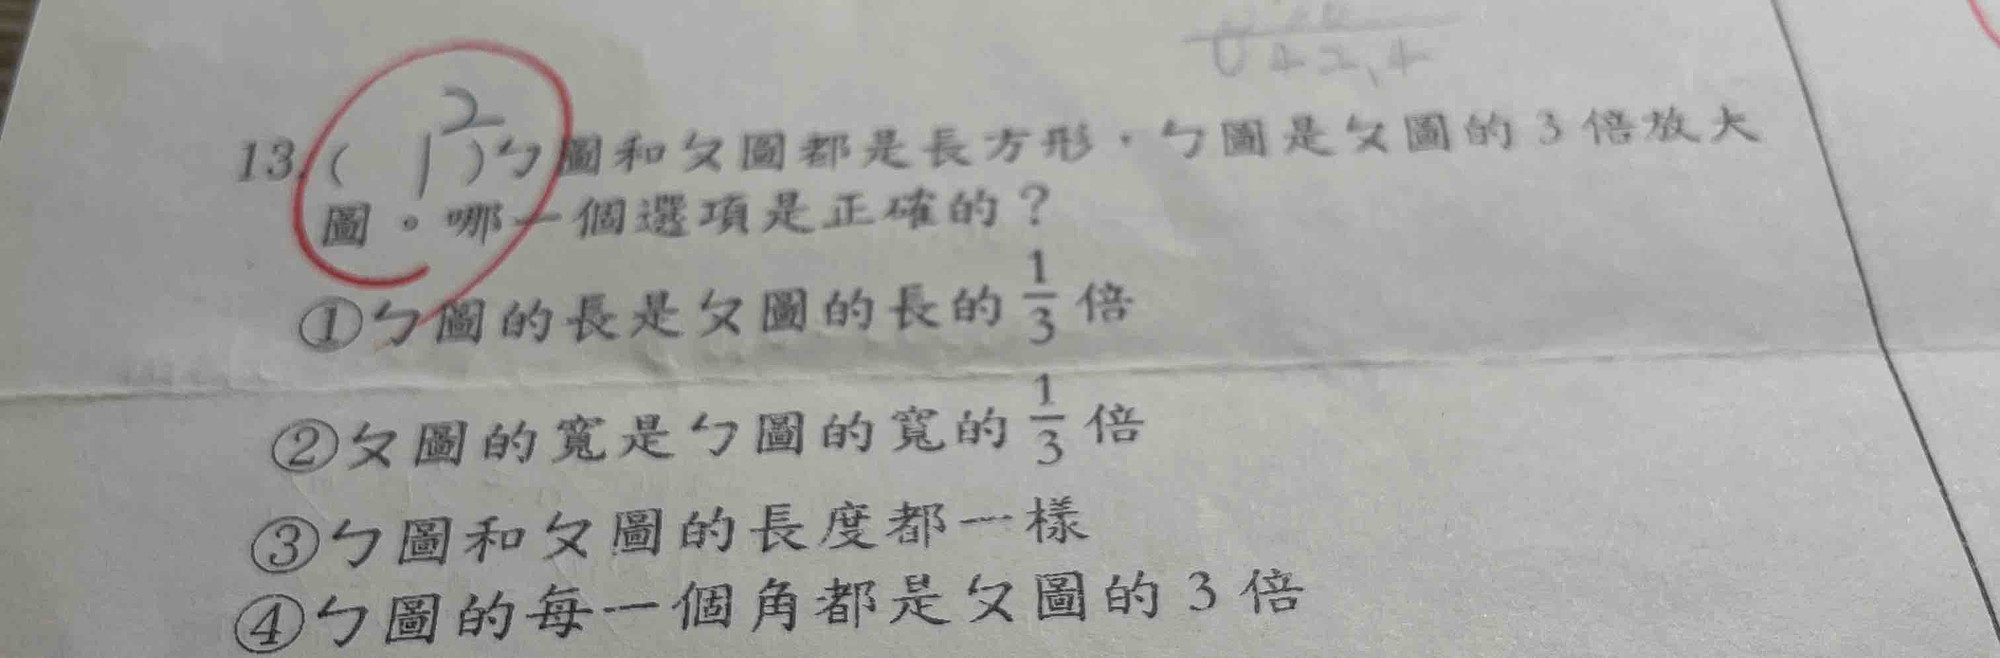 42.4
2
13.( 1 )ㄅ圖和ㄆ圖都是長方形，ㄅ圖是ㄆ圖的3倍放大
圖。哪一個選項是正確的？
①ㄅ圖的長是ㄆ圖的長的1/3倍
②ㄆ圖的寬是ㄅ圖的寬的1/3倍
③ㄅ圖和ㄆ圖的長度都一樣
④ㄅ圖的每一個角都是ㄆ圖的3倍